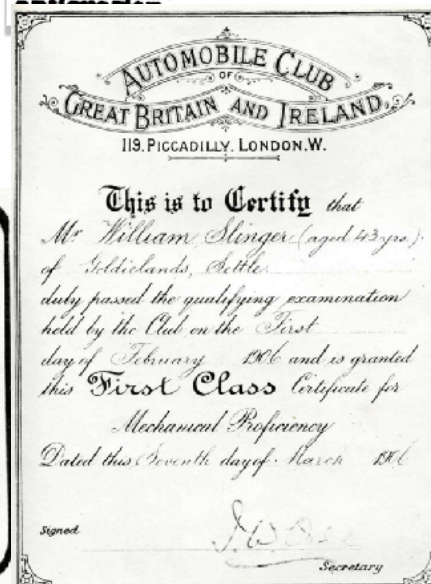 AUTOMOBILE CLUB
OF
GREAT BRITAIN AND IRELAND.
119. PICCADILLY. LONDON. W.
This is to Certify that
Mr William Slinger (aged 43 yrs.)
of Goldielands, Settle
duly passed the qualifying examination
held by the Club on the First
day of February 1906 and is granted
this First Class Certificate for
Mechanical Proficiency
Dated this Seventh day of March 1906
Signed
Secretary